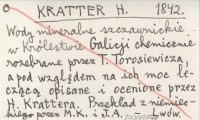 KRATTER H. 1842.
Wody mineralne szczawnickie
w Królestwie Galicji chemicznie
rozebrane przez T. Torosiewicza,
a pod względem na ich moc le-
czącą opisane i ocenione przez
H. Krattera. Przekład z niemiec-
kiego przez M.K. i J.A. Lwów.